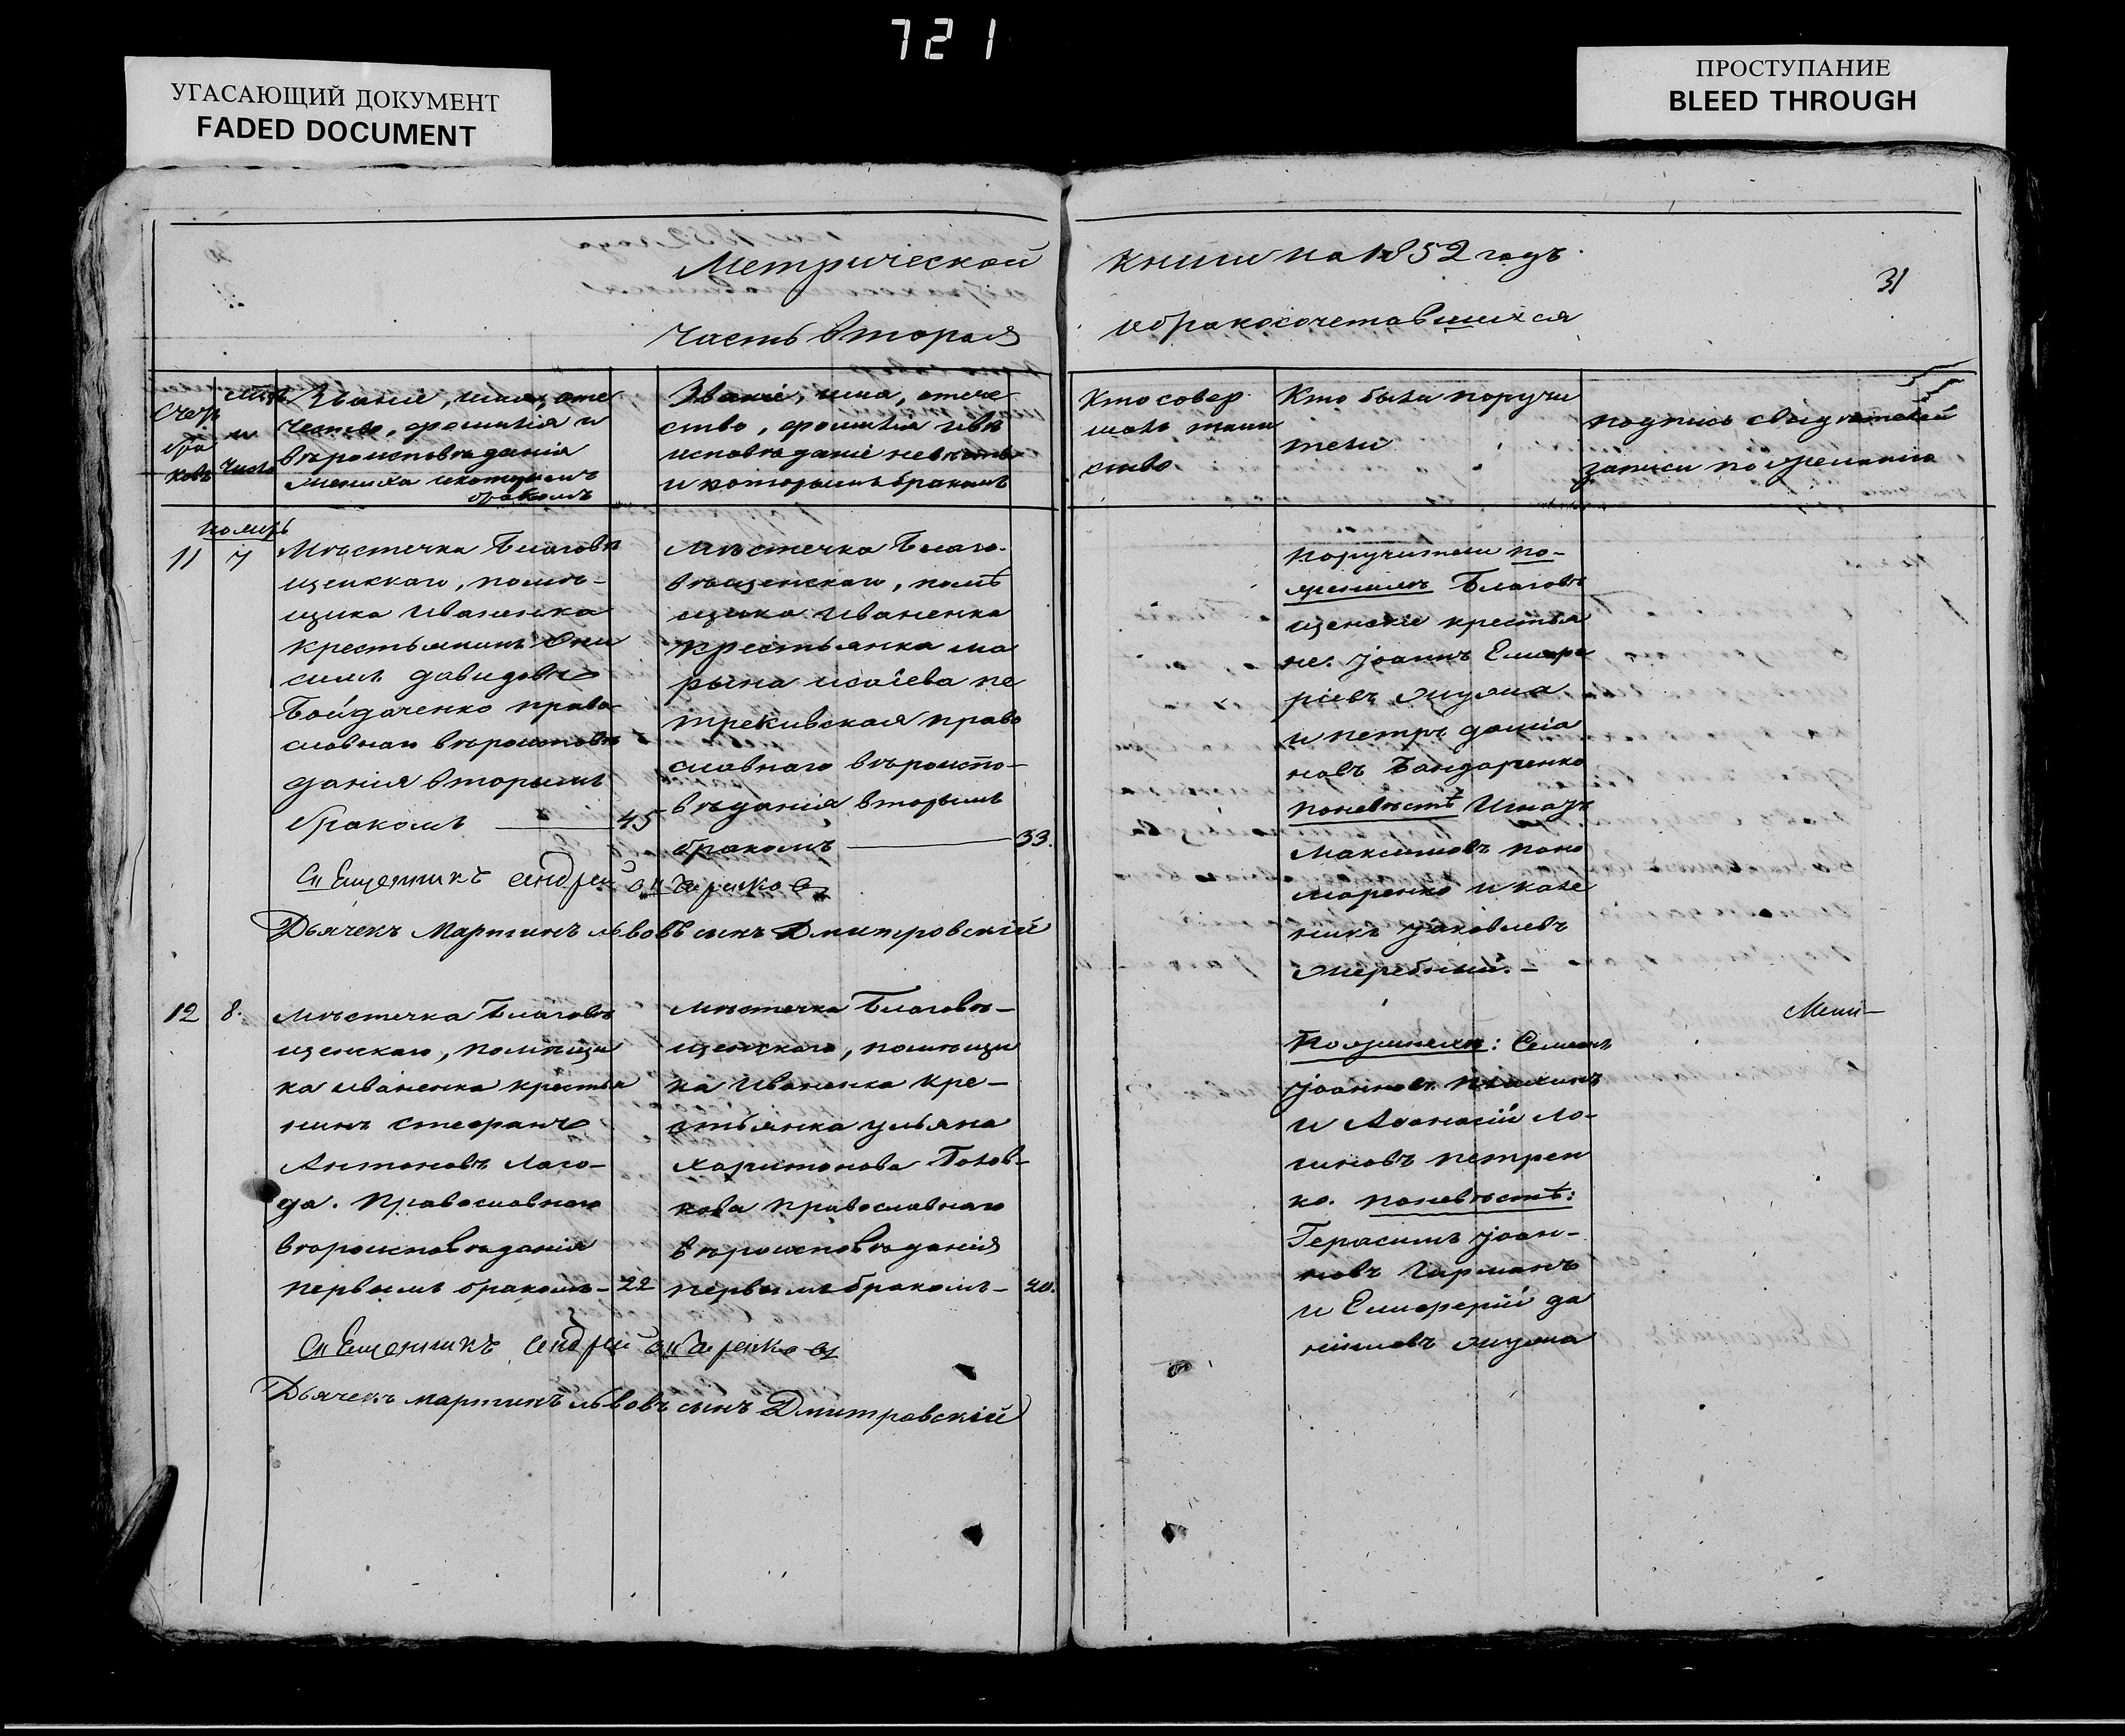 721
УГАСАЮЩИЙ ДОКУМЕНТ
FADED DOCUMENT
ПРОСТУПАНИЕ
BLEED THROUGH
Метрической
часть вторая
книги на 1852 годъ
о бракосочетавшихся
31
Счетъ
бра
ковъ
и
число
Званіе, имя, оте
чество, фамилія и
вѣроисповѣданія
жениха и которымъ
бракомъ
Званіе, имя, отече
ство, фамилія и вѣ
исповѣданіе невѣсты
и которымъ бракомъ
Кто совер
шалъ таин
ство
Кто были поручи
тели
подпись свидѣтелей
записи по желанію
ноябрь
11
7
Мѣстечка Благовѣ
щенскаго, помѣ-
щика Иваненка
крестьянинъ Они
симъ давидовъ
Бойдаченко право
славнаго вѣроисповѣ
данія вторымъ
бракомъ
45
Мѣстечка Благо-
вѣщенскаго, помѣ
щика Иваненка
крестьянка ма
рына исаіева пе
трекивская право
славнаго вѣроиспо-
вѣданія вторымъ
бракомъ
33.
Священникъ Андрей
Дьячекъ Мартинъ львовъ сынъ Дмитровскій
поручители по-
женихѣ Благовѣ
щенскіе крестья
не: Јоаннъ Елифе
ріевъ
и петръ даміа
новъ Бондаренко
поневѣстѣ Игнатъ
Максимовъ поно
маренко и кале
никъ Јаковлевъ
жеребный.-
12
8.
Мѣстечка Благовѣ
щенскаго, помѣщи
ка иваненка крестья
нинъ стефанъ
Антоновъ Лаго-
да. Православнаго
вѣроисповѣданія
первымъ бракомъ-
22
Мѣстечка Благовѣ-
щенскаго, помѣщи
ка Иваненка кре-
стьянка ульяна
харитонова Голов-
кова православнаго
вѣроисповѣданія
первымъ бракомъ-
20.
Священникъ Андрей
Дьячекъ мартинъ львовъ сынъ Дмитровскій
По женихѣ: Семенъ
Јоанновъ
и Аѳанасій Ло-
гиновъ петрен
ко. поневѣстѣ:
Герасимъ Јоан-
новъ
и Елиферій да
ніиловъ